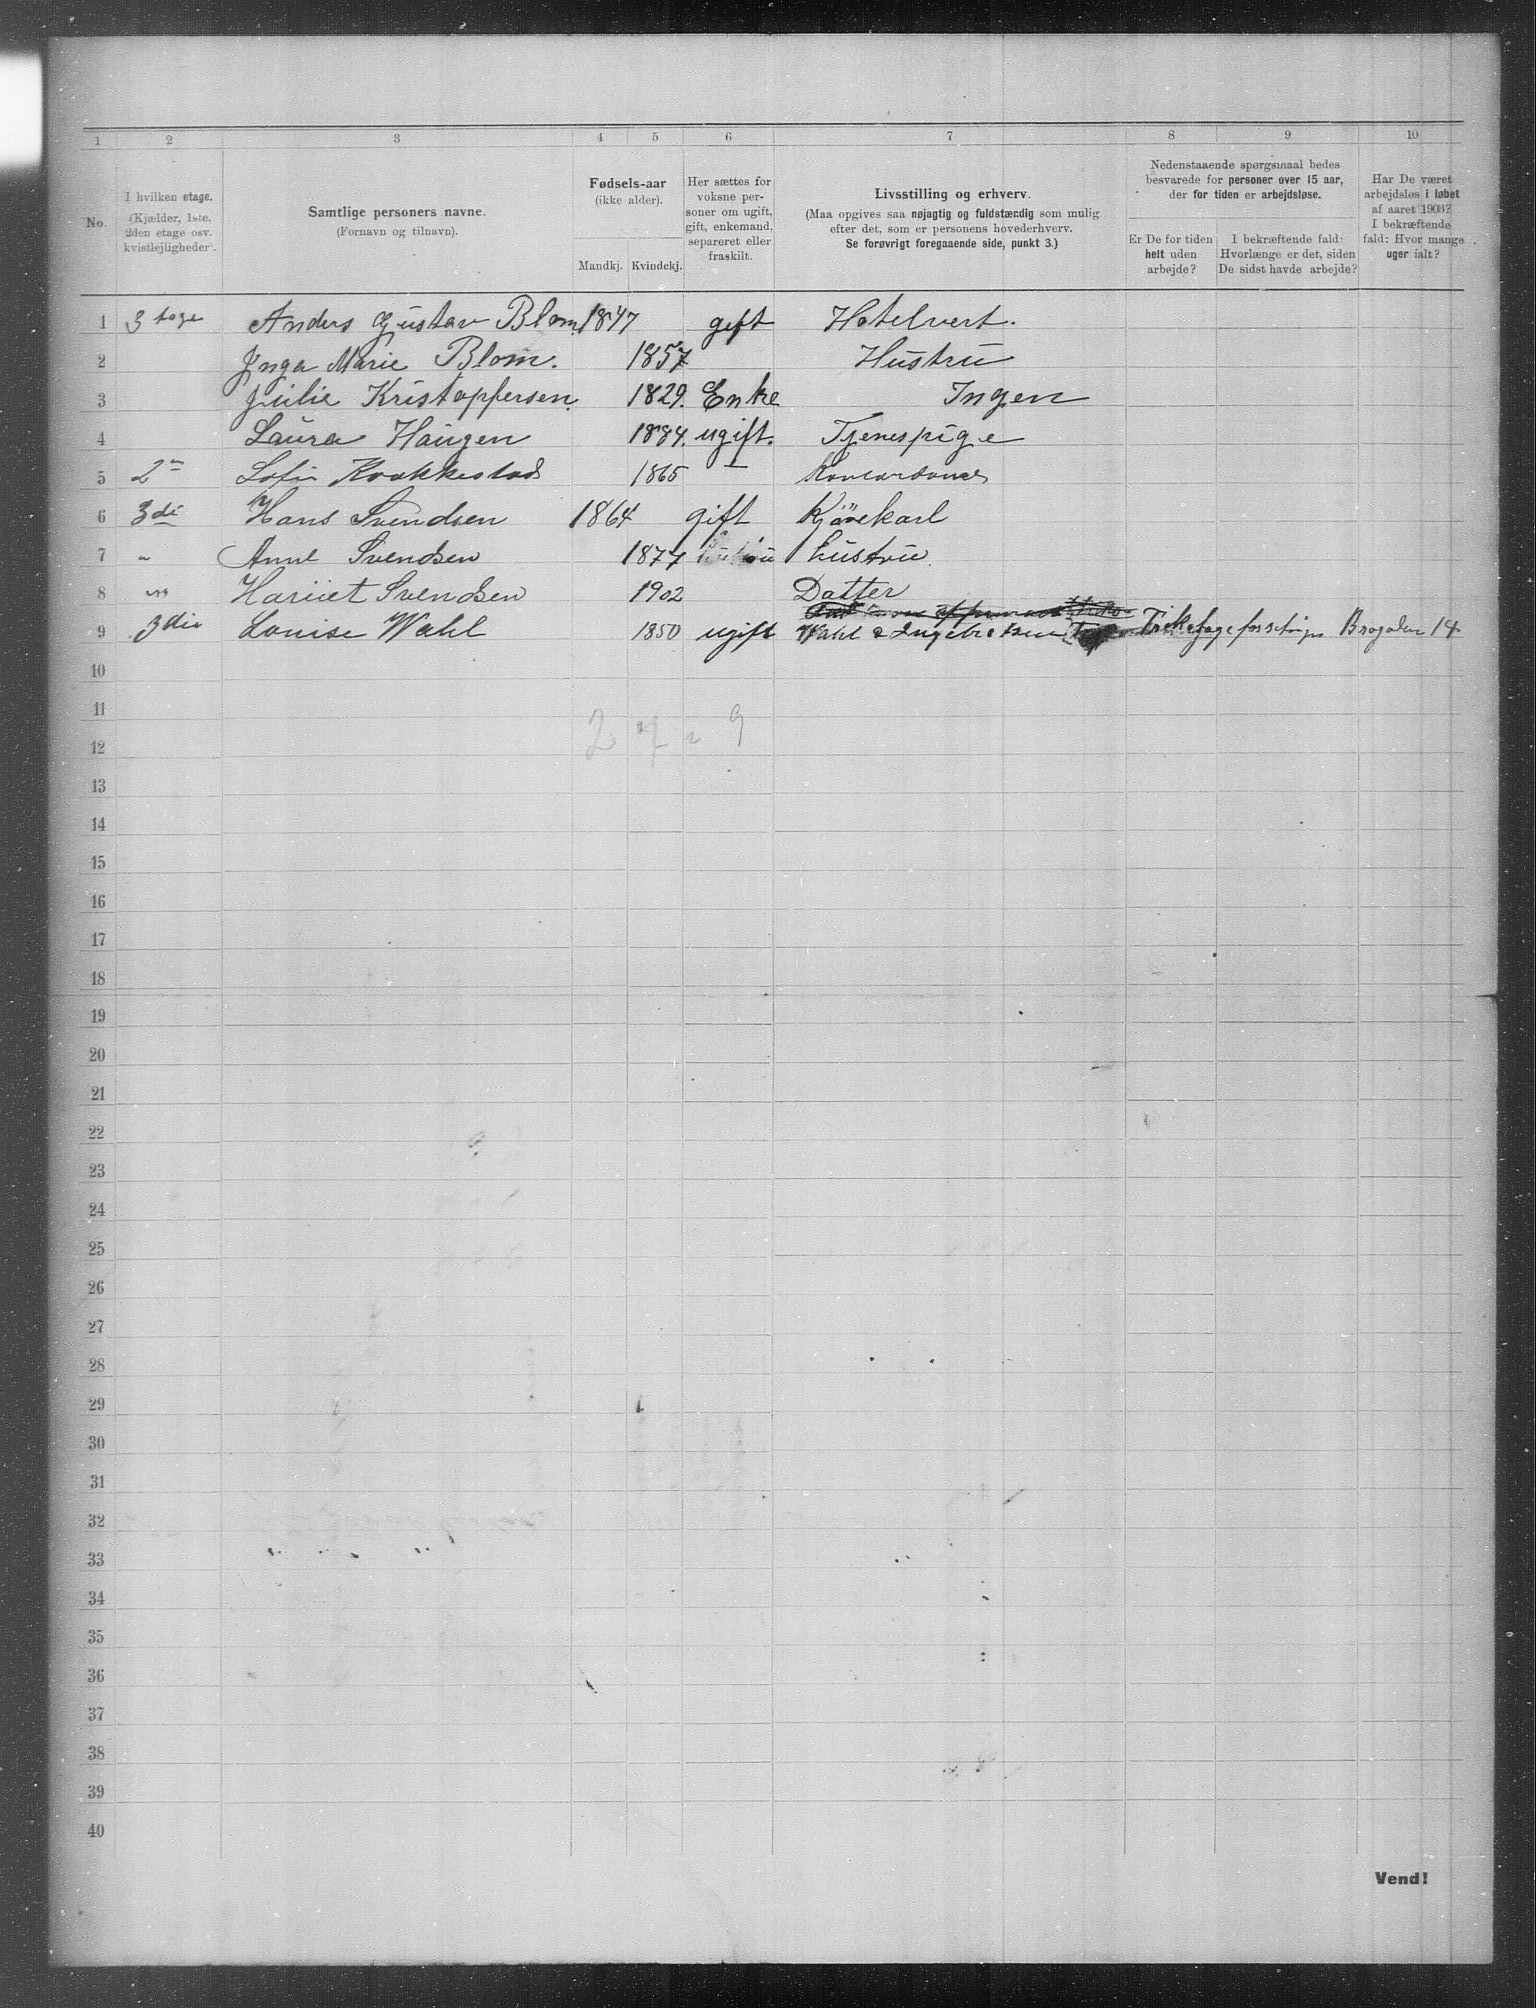 1 2 3 4 5 6 7 8 9 10
No.
I hvilken etage.
(Kjælder, 1ste,
2den etage osv.
kvistlejligheder.
Samtlige personers navne.
(Fornavn og tilnavn).
Fødsels-aar
(ikke alder).
Mandkj. Kvindekj.
Her sættes for
voksne per-
soner om ugift,
gift, enkemand,
separeret eller
fraskilt.
Livsstilling og erhverv.
(Maa opgives saa nøjagtig og fuldstærdig som mulig
efter det, som er personens hovederhverv.
Se forøvrigt foregaaende side, punkt 3.)
Nedenstaaende spørgsmaal bedes
besvarede for personer over 15 aar,
der for tiden er arbejdsløse.
Er De for tiden
helt uden
arbejde?
I bekræftende fald:
Hvorlænge er det, siden
De sidst havde arbejde?
Har De været
arbejdsløs i løbet
af aaret 1903?
I bekræftende
fald: Hvor mange
uger ialt?
1 3 tage Anders Gustav Blom 1847 gift Hotelvert.
2 Inga Marie Blom. 1857 Hustru
3 Julie Kristoppersen. 1829. Enke Ingen
4 Laura Haugen 1884. ugift. Tjenespige
5 2 Sofie 1865 —
6 3di Hans Svendsen 1864 gift Kjørekarl
7 " Anne Svendsen 1877 Hustru
8 Harriet Svendsen 1902 Datter
9 3die Louise Wahl 1850 ugift Wahl & Ingebretsen 14
10
11
2 9
12
13
14
15
16
17
18
19
20
21
22
23
24
25
26
27
28
29
30
31
32
33
34
35
36
37
38
39
40
Vend!